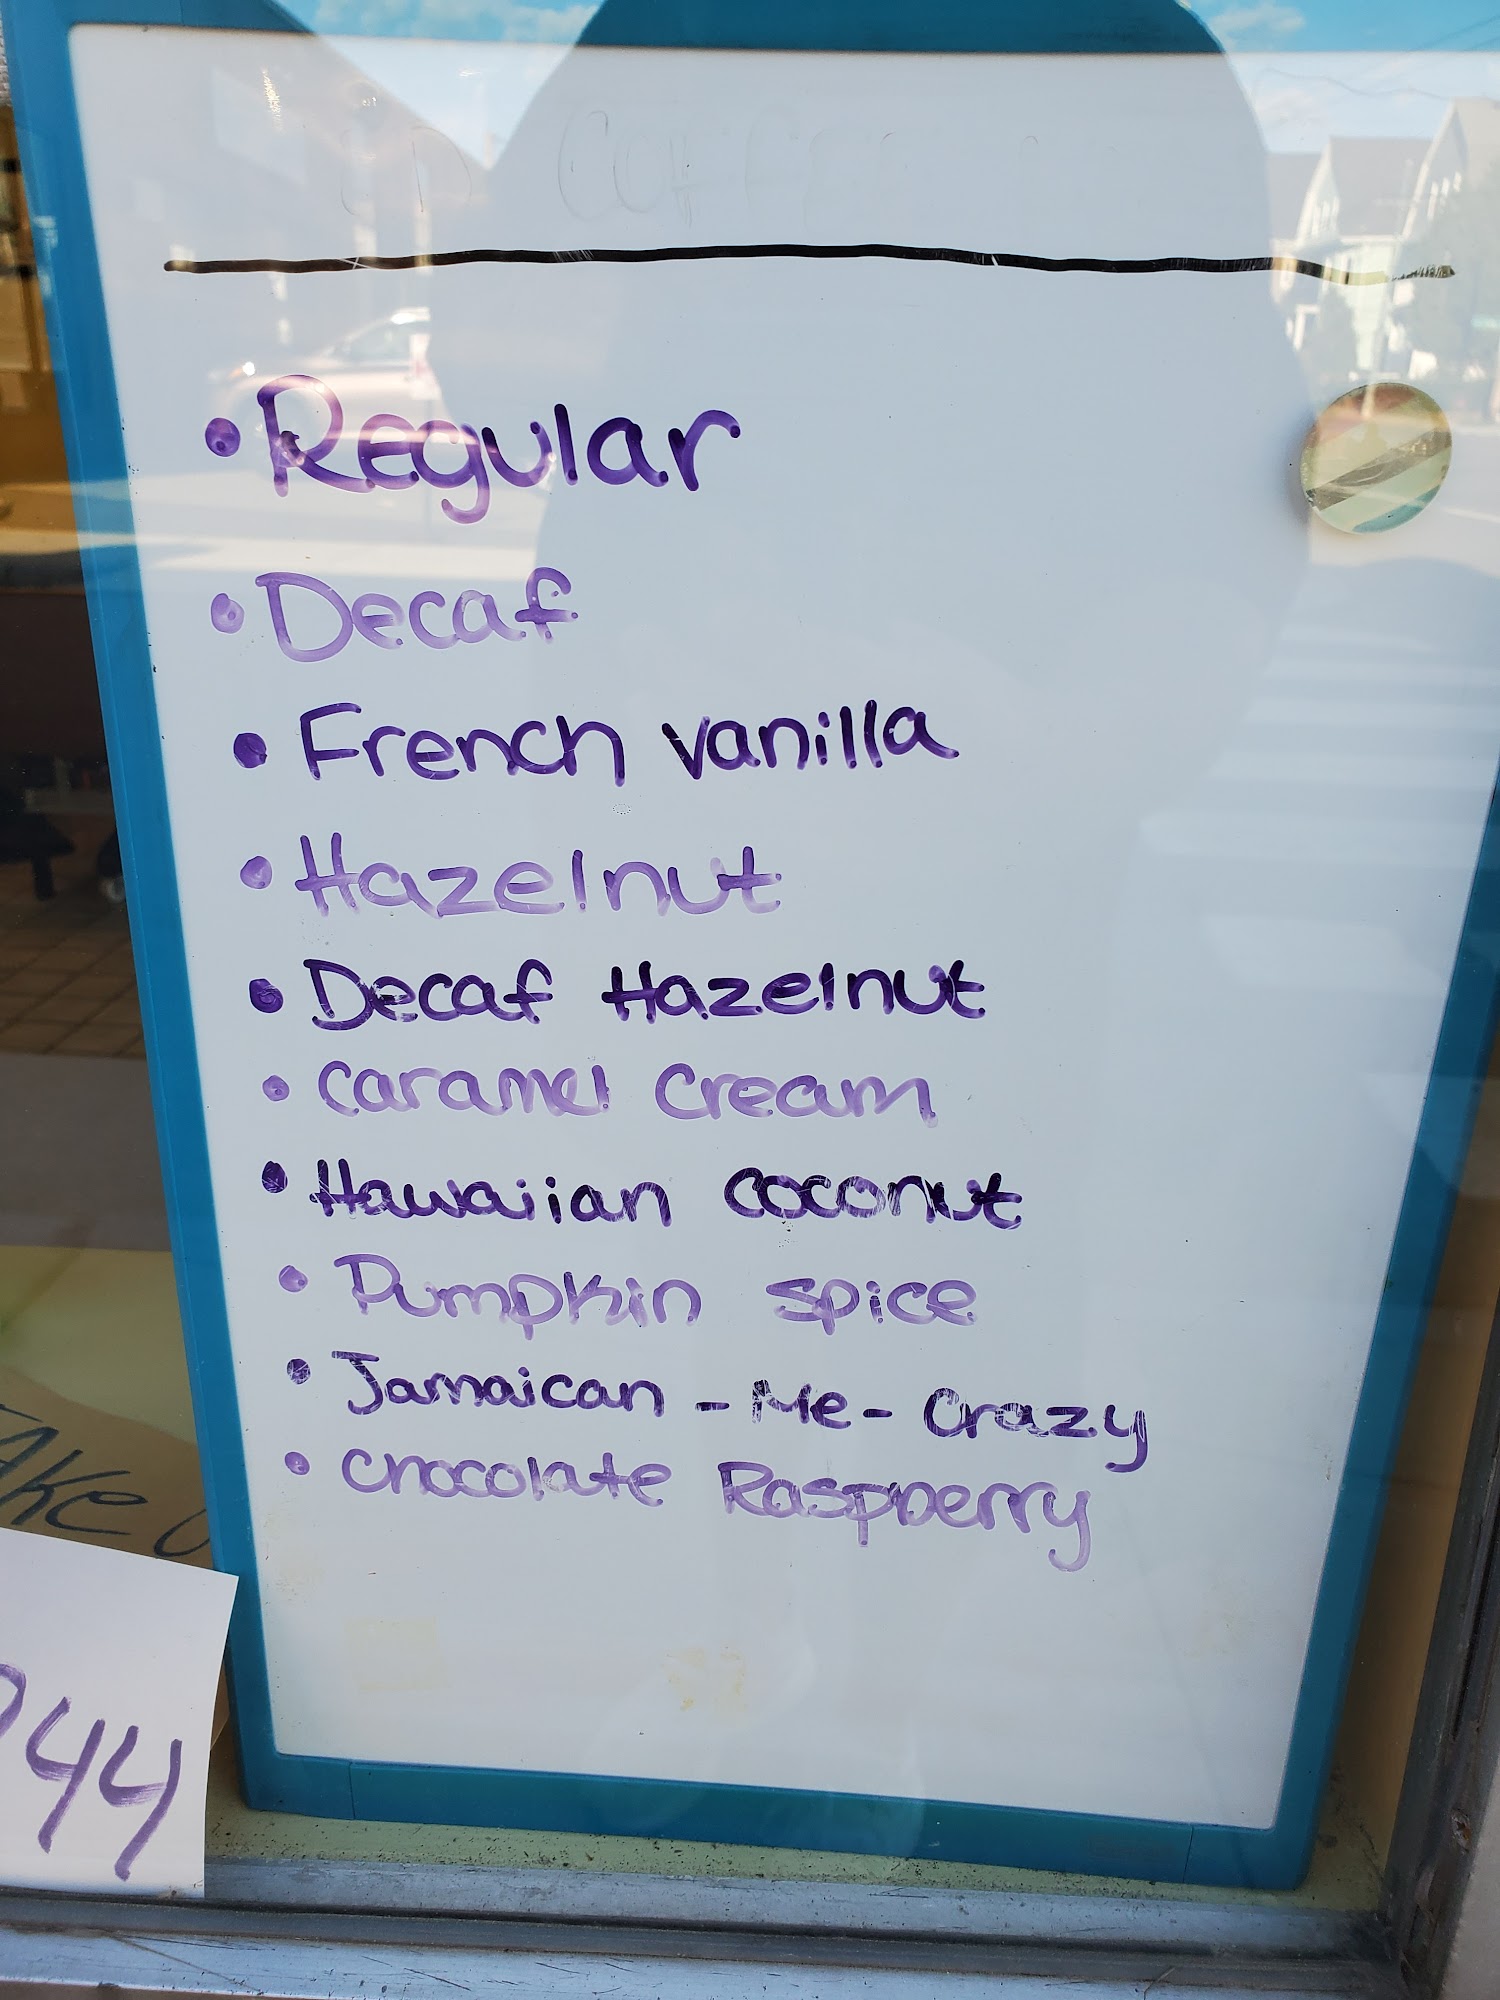 COFFEE
• Regular
• Decaf
• French vanilla
• Hazelnut
• Decaf Hazelnut
• Caramel Cream
• Hawaiian Coconut
• Pumpkin spice
• Jamaican - Me - Crazy
• Chocolate Raspberry
44